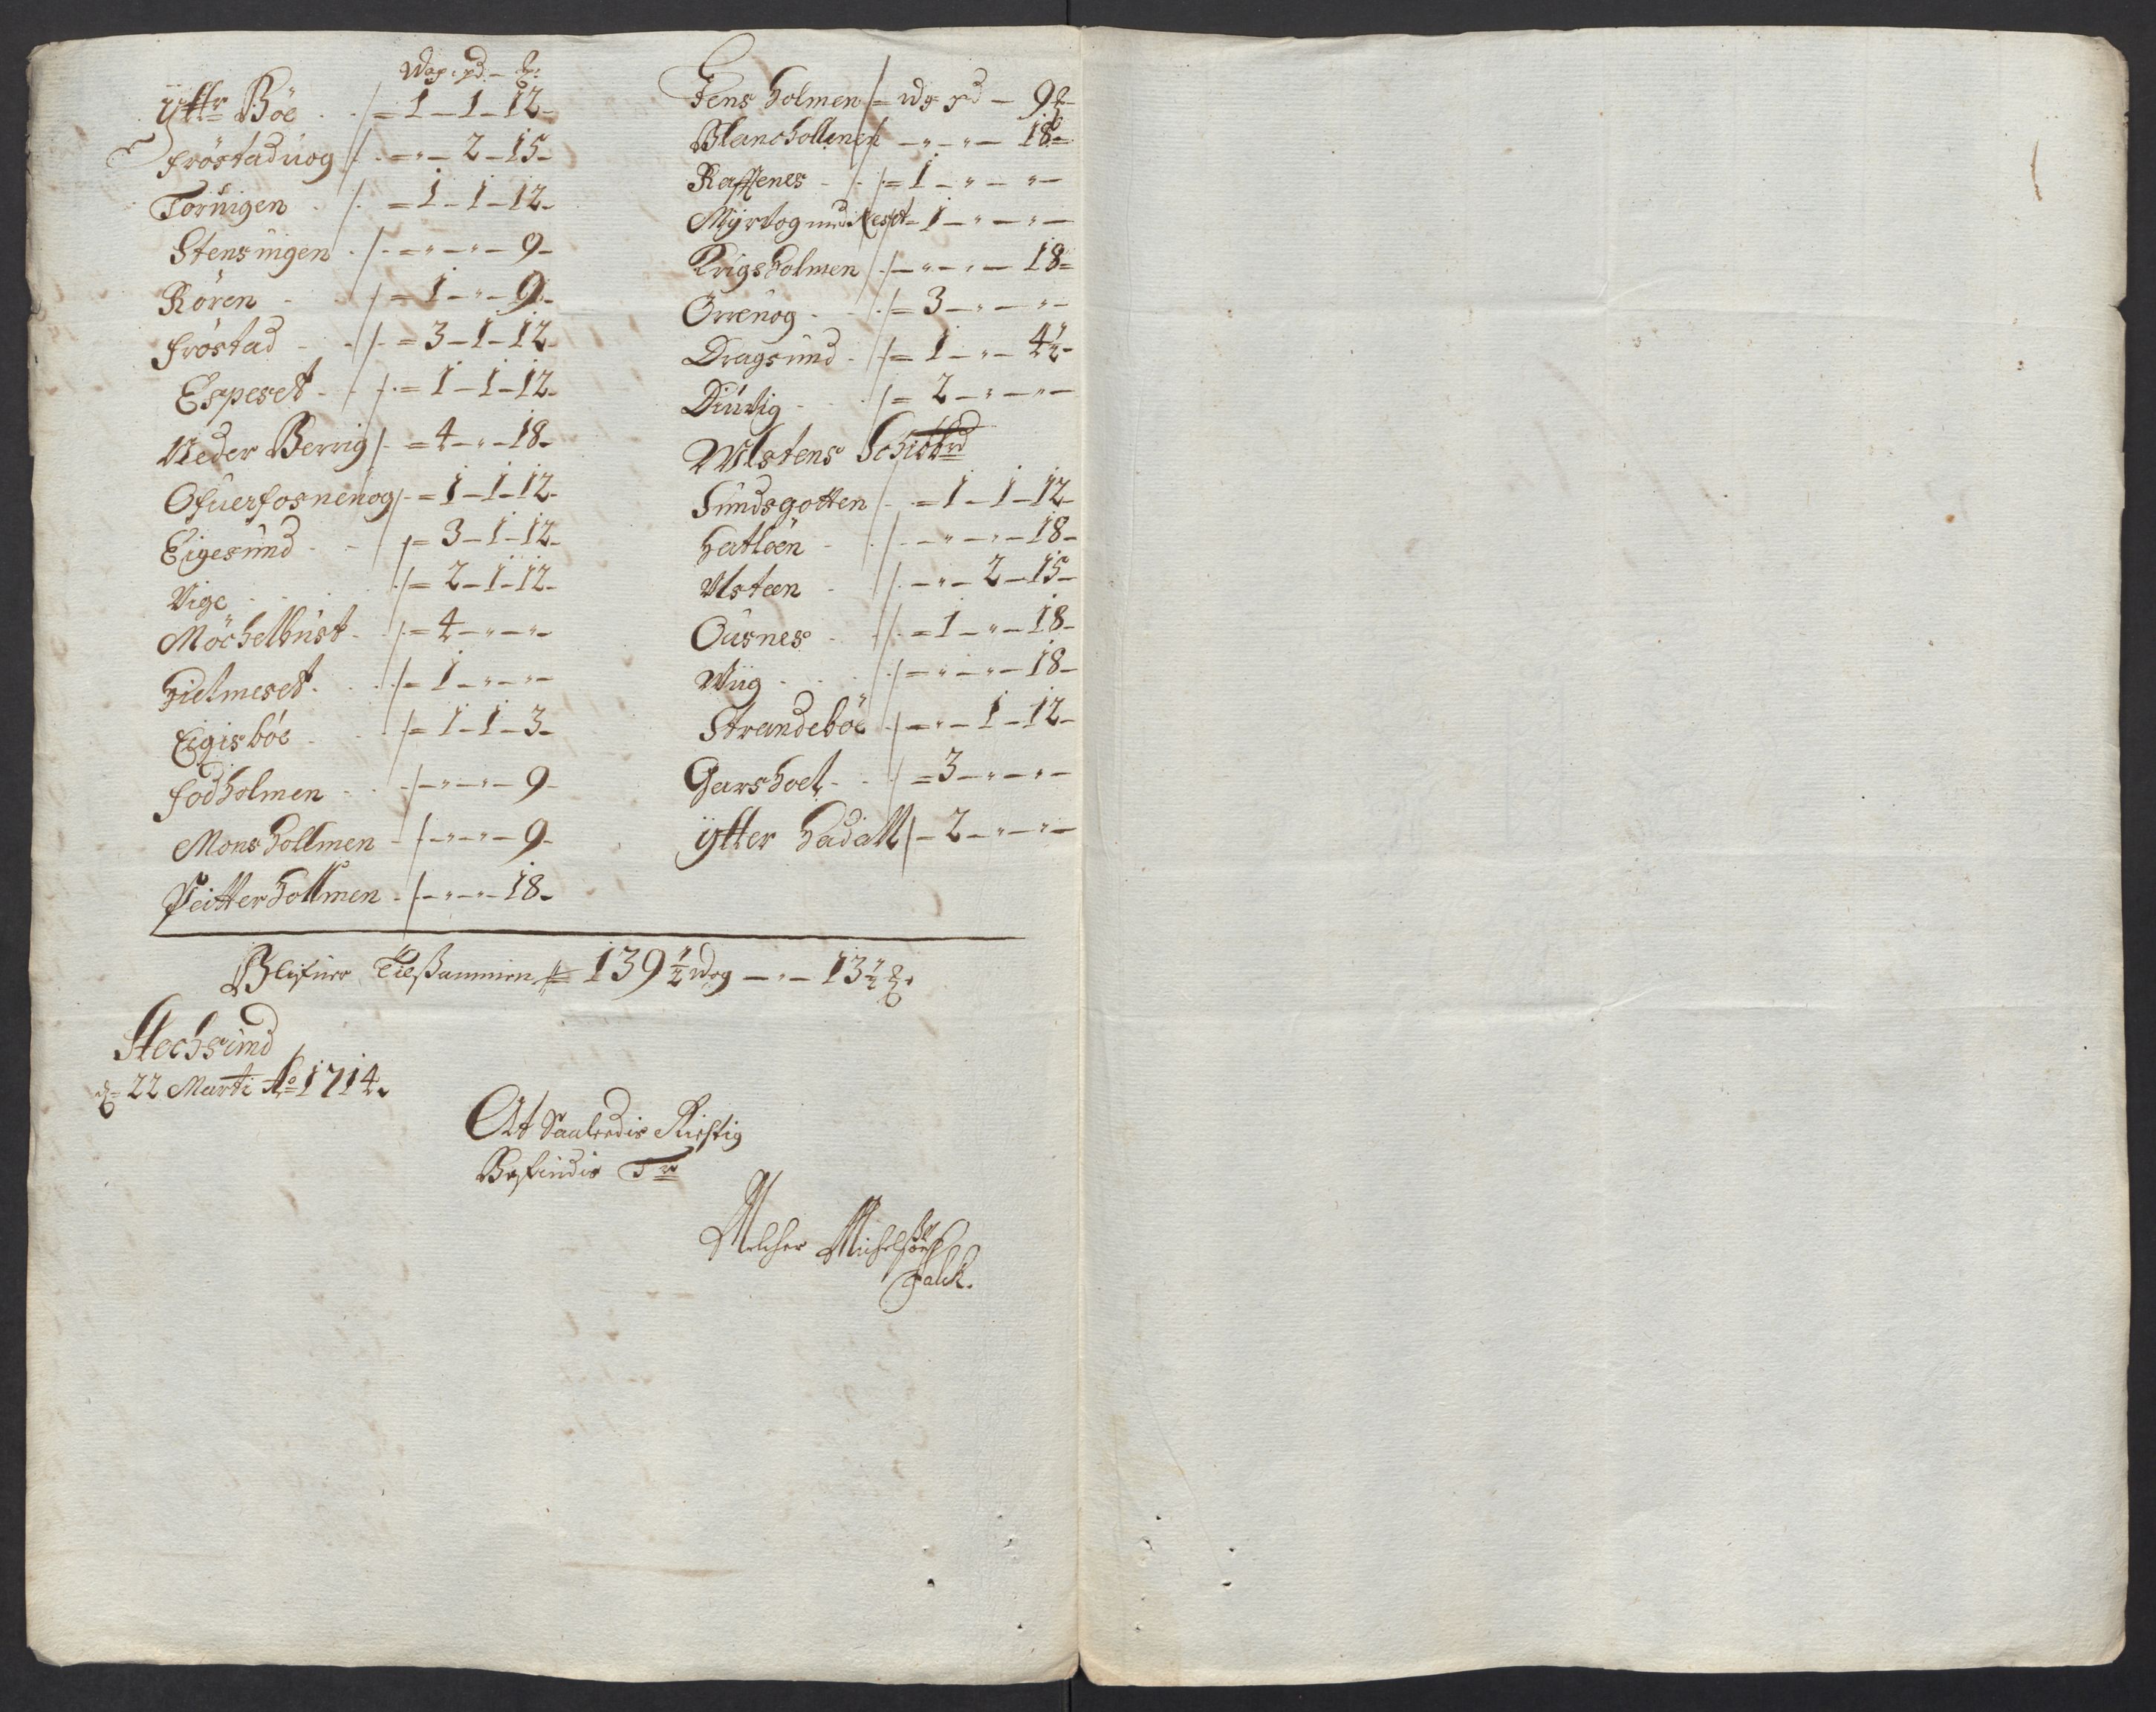 Wog: pd. – ℔:
Ytter Böe – 1 – 1 – 12 –
Fröstaduog – " – 2 – 15 –
Torüigen – 1 – 1 – 12 –
Stensüigen – " – " – 9 –
Rören – 1 – " – 9 –
Fröstad – 3 – 1 – 12 –
Espeset – 1 – 1 – 12 –
Neder Berrig – 4 – " – 18 –
Ofuerfosnenog – 1 – 1 – 12 –
Eigesund – 3 – 1 – 12 –
Vige – 2 – 1 – 12 –
Möchelbust – 4 – " – " –
Hielmeset – 1 – " – " –
Eigisböe – 1 – 1 – 3 –
Fodholmen – " – " – 9 –
Mons hollmen – " – " – 9 –
Peitter hollmen – " – " – 18 –
Jens holmen = wog pd – 9 ℔ –
Blanchollmen – " – " – 18 –
Raffenes – 1 – " – " –
Myrvog – 1 – " – " –
Krigsholmen – " – " – 18 –
Orrenog – 3 – " – " –
Dragsund – 1 – " – 4½ –
Diuvig – 2 – " – " –
Ulstens Schibbrd
Sundsgotten – 1 – 1 – 12 –
Hatlöen – " – " – 18 –
Ulsteen – " – 2 – 15 –
Ousnes – 1 – " – 18 –
Wiig – " – " – 18 –
Strandeböe – " – 1 – 12 –
Garshoel – 3 – " – " –
Ytter Hadall – 2 – " – " –
Blifuer Tilsammen = 139½ Wog – " – 13½ ℔.
Stochsund
d: 22 Marti Ao 1714.
At Saaledis Rigtig
Befindis T
Melcher Michelsen
Falck.